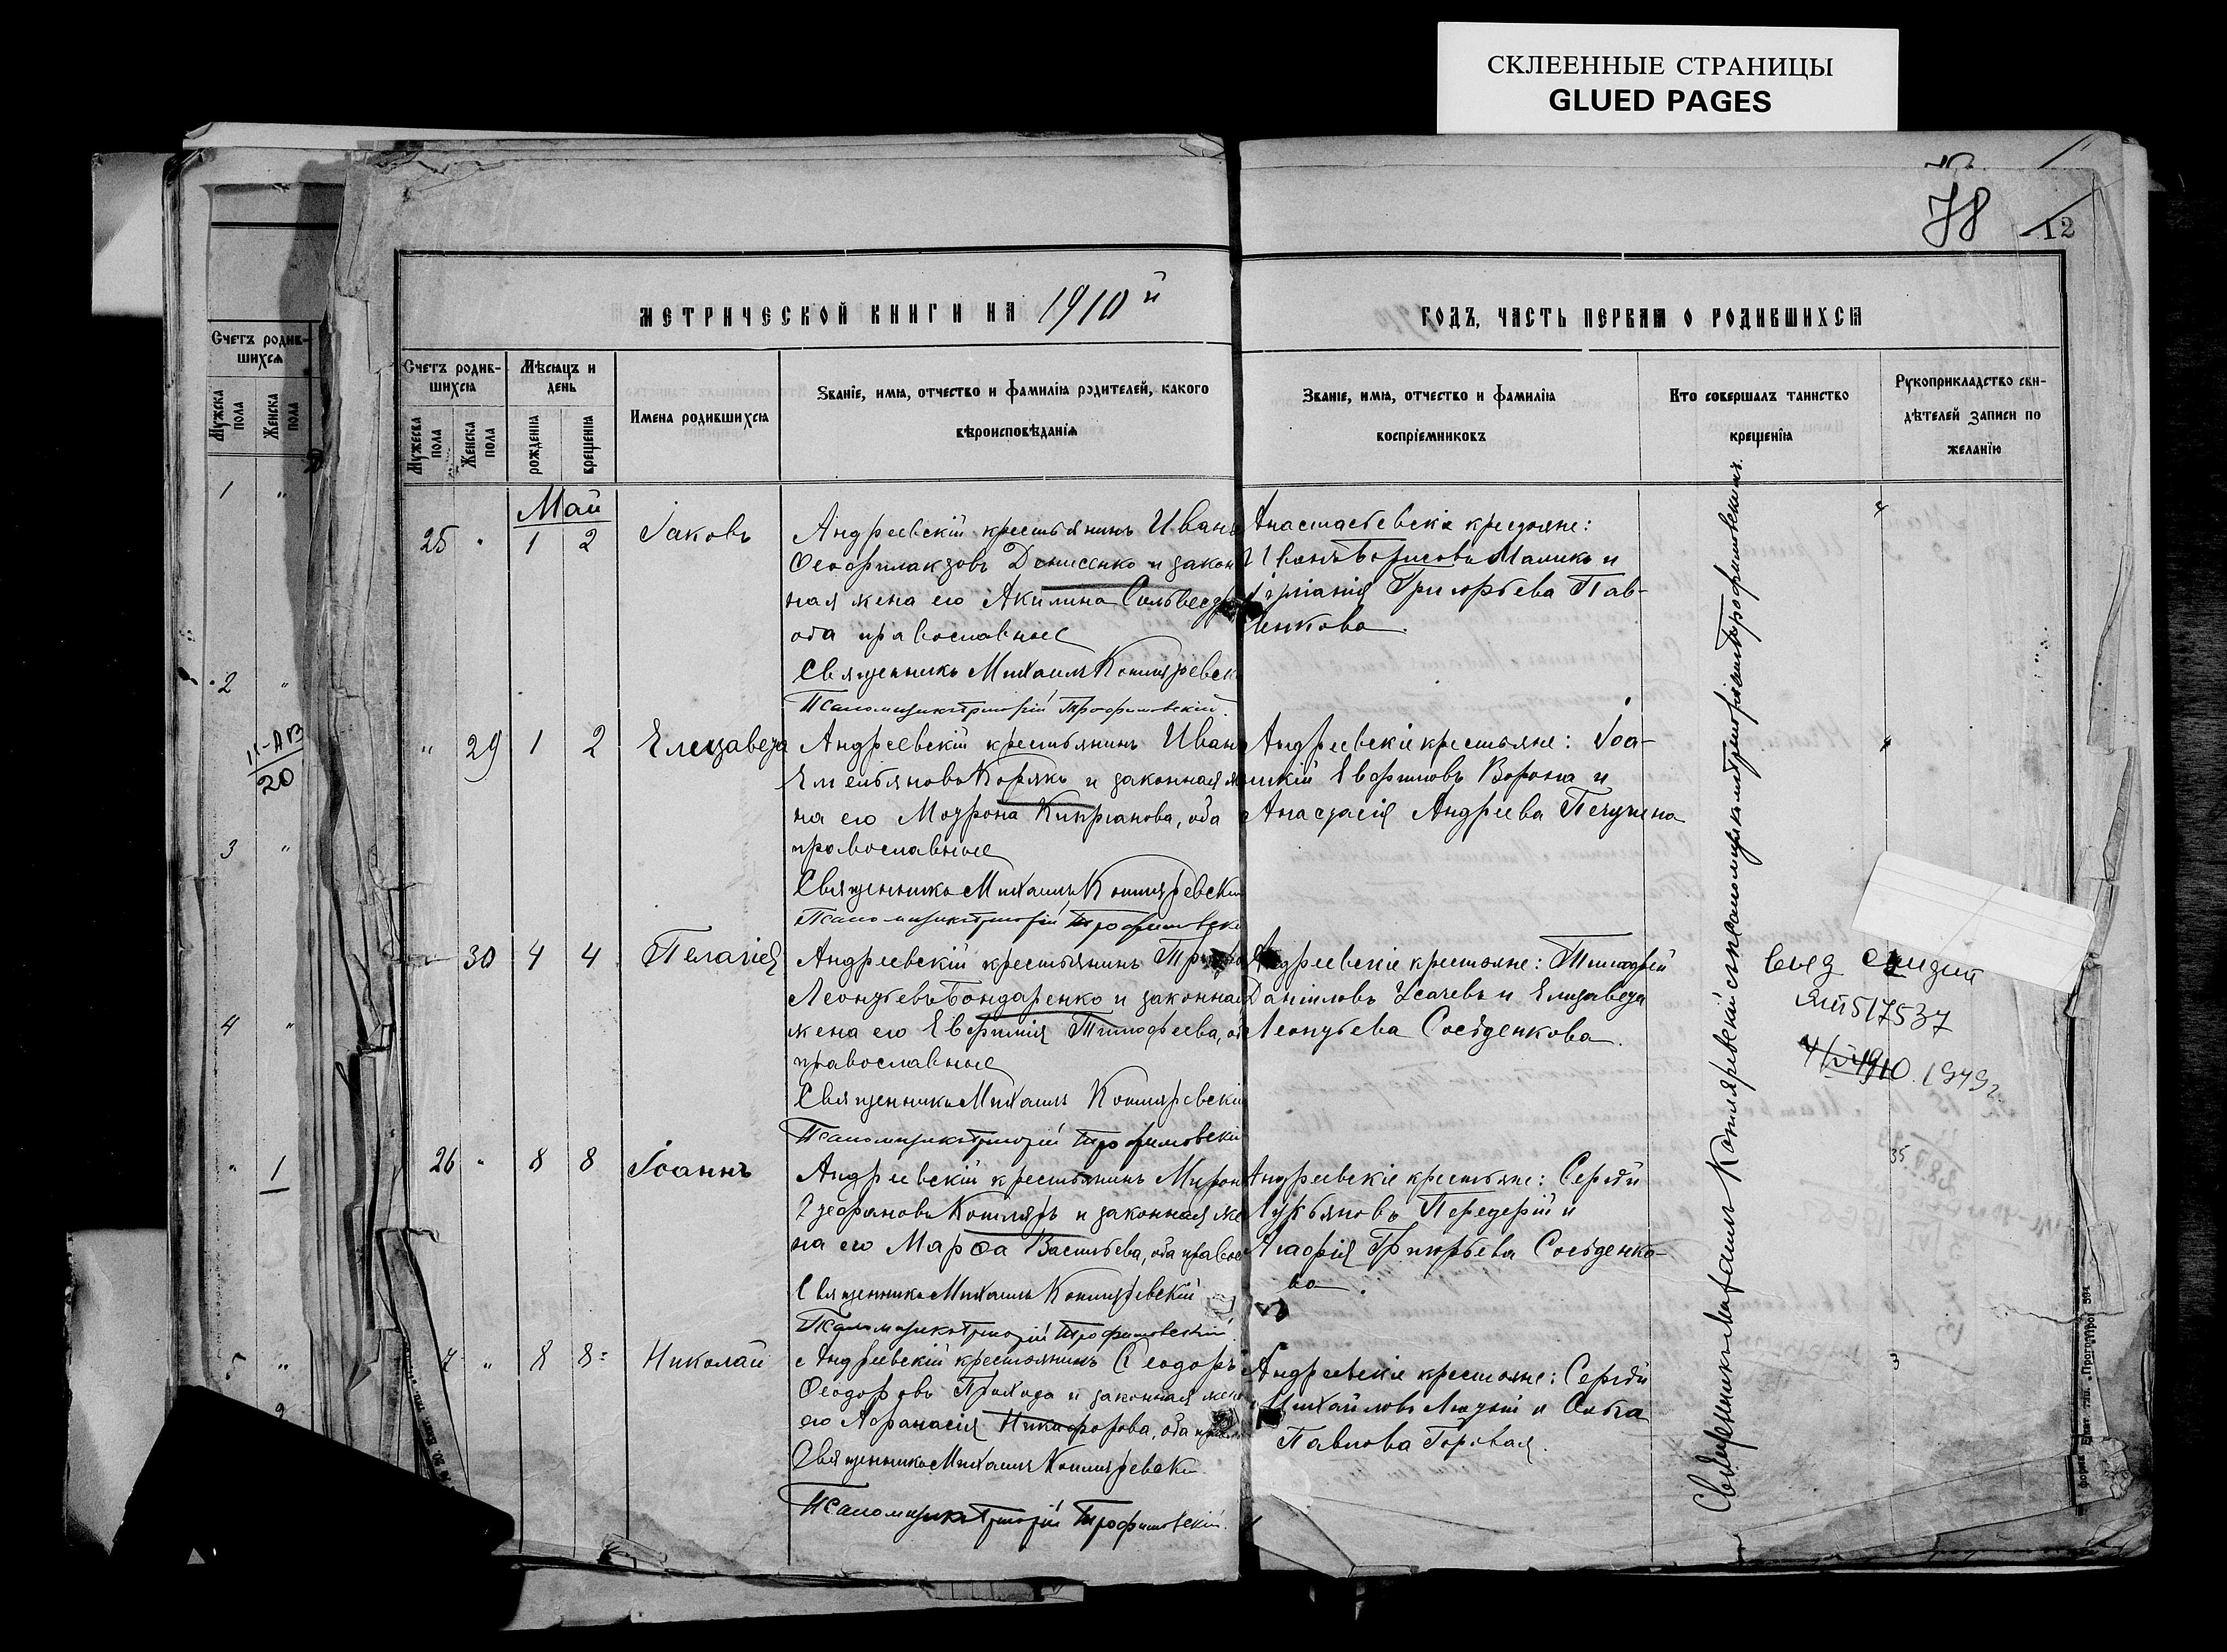 СКЛЕЕННЫЕ СТРАНИЦЫ
GLUED PAGES
78
12
МЕТРИЧЕСКОЙ КНИГИ НА 1910й
ГОДЪ, ЧАСТЬ ПЕРВАЯ О РОДИВШИХСЯ
Счетъ родив-
шихся
Мужеска пола
Женска пола
Счетъ родив-
шихся
Мужеска пола
Женска пола
Мѣсяцъ и
день
рожденія
крещенія
Имена родившихся
Званіе, имя, отчество и фамилія родителей, какого
вѣроисповѣданія
Званіе, имя, отчество и фамилія
воспріемниковъ
Кто совершалъ таинство
крещенія
Рукоприкладство сви-
дѣтелей записи по
желанію
1 "
2 "
20
3 "
4 "
" 1
5 "
Май
25 " 1 2 Іаковъ
Андреевскій крестьянинъ Иванъ
Ѳеофилактовъ Денисенко и закон
ная жена его Акилина Сильвестр
оба православные
Священникъ Михаилъ Котляревск
Псаломщикъ Григорій Трофимовскій.
Анастасьевскіе крестьяне:
Борисовъ Маликъ и
Григорьева Пав-
ленкова.
" 29 1 2 Елизавета
Андреевскій крестьянинъ Иванъ
Емельяновъ Корякъ и законная ж
на его Матрона Кипріанова, оба
православные
Священникъ Михаилъ Котляревскій
Псаломщикъ Григорій Трофимовскі
Андреевскіе крестьяне: Іоа-
нникій Евфимовъ Ворона и
Анастасія Андреева Печунина
" 30 4 4 Пелагія
Андреевскій крестьянинъ
Леонтьевъ Бондаренко и законная
жена его Евфимія Тимофеева, об
православные
Священникъ Михаилъ Котляревскій
Псаломщикъ Григорій Трофимовскій
Андреевскіе крестьяне: Тимофей
Даніиловъ Усачевъ и Елизавета
Леонтьева Сосѣденкова.
26 " 8 8 Іоаннъ
Андреевскій крестьянинъ Миронъ
Стефановъ Котляръ и законная же
на его Марѳа Васильева, оба правос
Священникъ Михаилъ Котляревскій
Псаломщикъ Григорій Трофимовскій.
Андреевскіе крестьяне: Сергѣй
Лукьяновъ Передерій и
Агафія Григорьева Сосѣденко-
ва.
7 " 8 8 Николай
Андреевскій крестьянинъ Ѳеодоръ
Ѳеодоровъ Приходя и законная жена
его Афанасія Никифорова, оба прав
Священникъ Михаилъ Котляревскій
Псаломщикъ Григорій Трофимовскій.
Андреевскіе крестьяне: Сергѣй
Михайловъ Лютый и Ольга
Павлова Горовая.
Священникъ Михаилъ Котляревскій съ псаломщикомъ Григоріемъ Трофимовскимъ.
517537
1910. 1949г.
35
3